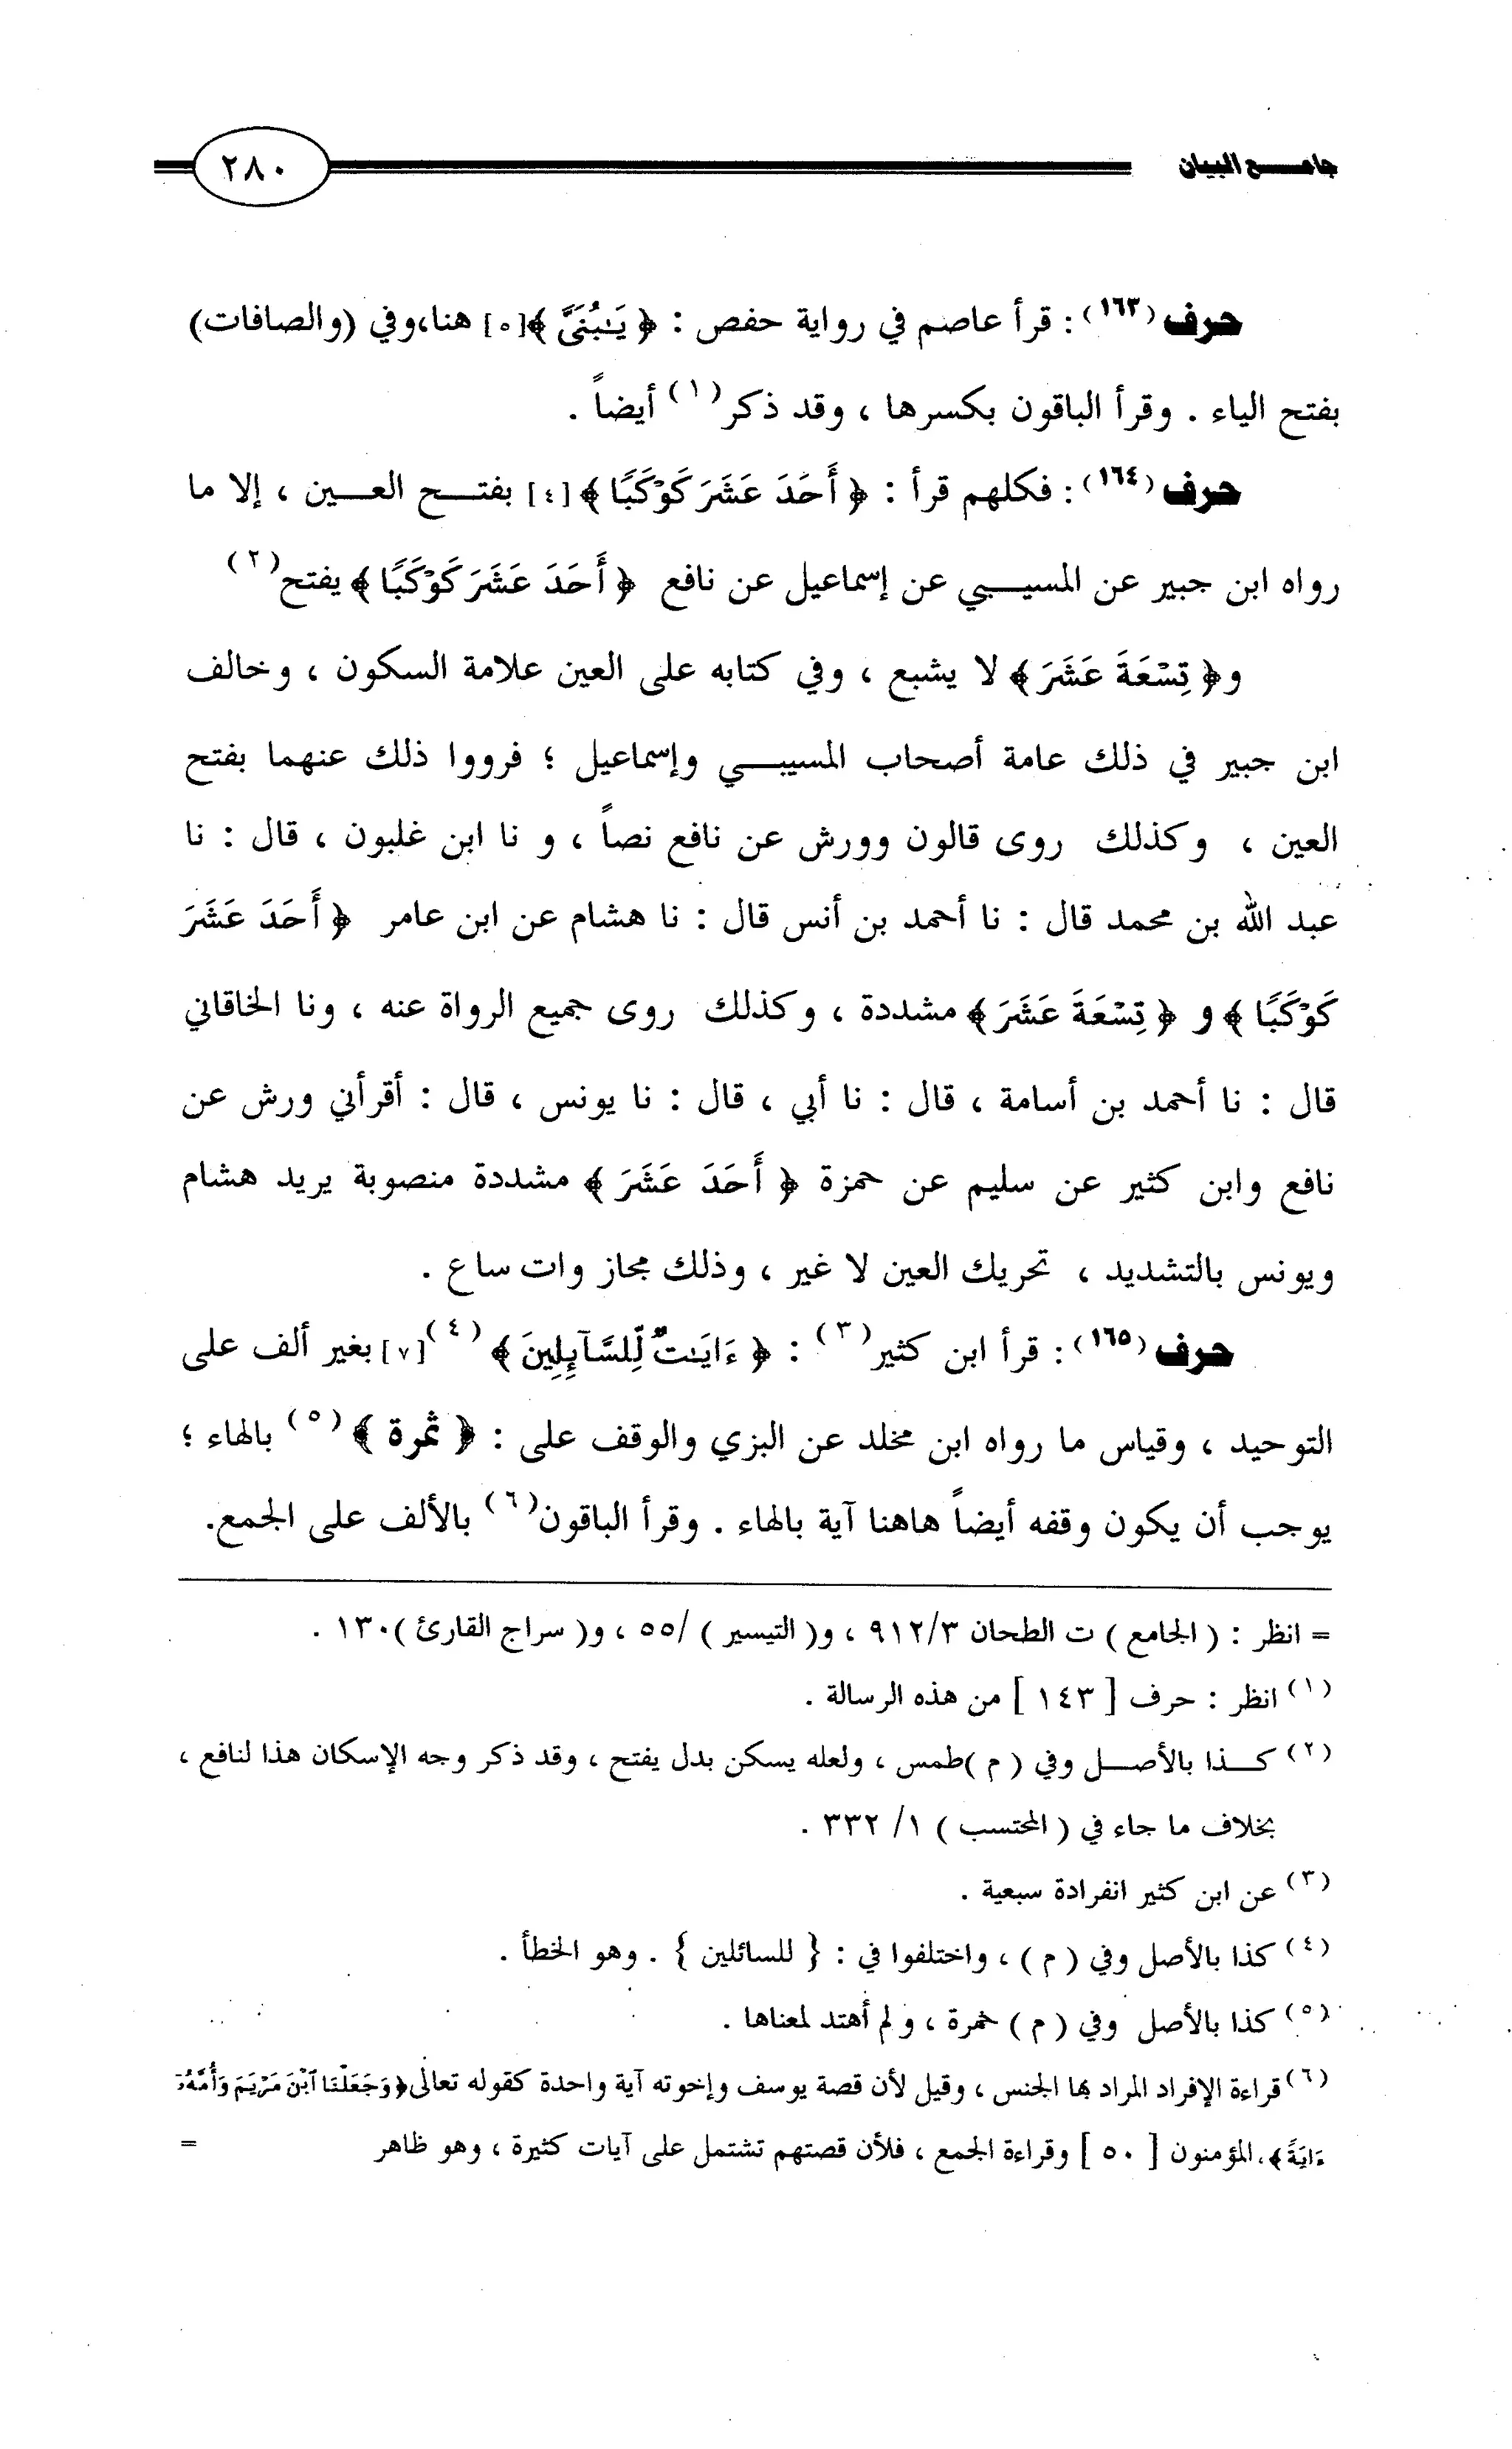 جامع البيان ٢٨٠
حرف (١٦٣): قرأ عاصم في رواية حفص : ﴿ يَٰبُنَيَّ ﴾[٥] هنا،وفي (والصافات)
بفتح الياء . وقرأ الباقون بكسرها ، وقد ذكر(١) أيضاً .
حرف (١٦٤): فكلهم قرأ : ﴿ أَحَدَ عَشَرَ كَوْكَبًا ﴾[٤] بفتح العين ، إلا ما
رواه ابن جبير عن المسيبي عن إسماعيل عن نافع ﴿ أَحَدَ عَشَرَ كَوْكَبًا ﴾ يفتح(٢)
و﴿ تِسْعَةَ عَشَرَ ﴾ لا يشبع ، وفي كتابه على العين علامة السكون ، وخالف
ابن جبير في ذلك عامة أصحاب المسيبي وإسماعيل ؛ فرووا ذلك عنهما بفتح
العين ، وكذلك روى قالون وورش عن نافع نصاً ، و نا ابن غلبون ، قال : نا
عبد الله بن محمد قال : نا أحمد بن أنس قال : نا هشام عن ابن عامر ﴿ أَحَدَ عَشَرَ
كَوْكَبًا ﴾ و ﴿ تِسْعَةَ عَشَرَ ﴾ مشددة ، وكذلك روى جميع الرواة عنه ، ونا الخاقاني
قال : نا أحمد بن أسامة ، قال : نا أبي ، قال : نا يونس ، قال : أقرأني ورش عن
نافع وابن كثير عن سليم عن حمزة ﴿ أَحَدَ عَشَرَ ﴾ مشددة منصوبة يريد هشام
ويونس بالتشديد ، تحريك العين لا غير ، وذلك مجاز وات ساع .
حرف (١٦٥): قرأ ابن كثير(٣) : ﴿ ءَايَٰتٌ لِّلسَّآئِلِينَ ﴾(٤)[٧] بغير ألف على
التوحيد ، وقياس ما رواه ابن مخلد عن البزي والوقف على : ﴿ ثمرة ﴾(٥) بالهاء ؛
يوجب أن يكون وقفه أيضاً هاهنا آية بالهاء . وقرأ الباقون(٦) بالألف على الجمع.
= انظر : ( الجامع ) ت الطحان ٩١٢/٣ ، و( التيسير ) /٥٥ ، و( سراج القارئ )١٣٠ .
(١) انظر : حرف [ ١٤٣ ] من هذه الرسالة .
(٢) كذا بالأصل وفي ( م )طمس ، ولعله يسكن بدل يفتح ، وقد ذكر وجه الإسكان هذا لنافع ،
بخلاف ما جاء في ( المحتسب ) ١/ ٣٣٢ .
(٣) عن ابن كثير انفرادة سبعية .
(٤) كذا بالأصل وفي ( م ) ، واختلفوا في : { للسائلين } . وهو الخطأ .
(٥) كذا بالأصل وفي ( م ) خمرة ، ولم أهتد لمعناها .
(٦) قراءة الإفراد المراد بها الجنس ، وقيل لأن قصة يوسف وإخوته آية واحدة كقوله تعالى﴿وَجَعَلْنَا ٱبْنَ مَرْيَمَ وَأُمَّهُۥٓ
ءَايَةً ﴾.المؤمنون [ ٥٠ ] وقراءة الجمع ، فلأن قصتهم تشتمل على آيات كثيرة ، وهو ظاهر =